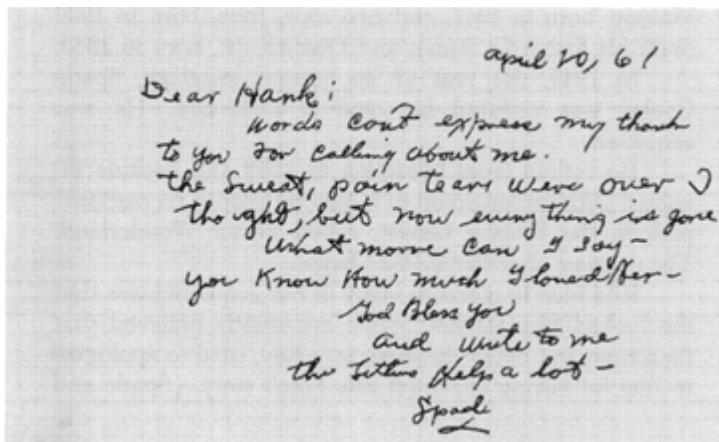 april 20, 61
Dear Hank:
Words cont express my thank
to you for calling about me.
the Sweat, pain tears were over I
thought, but now everything is gone
What more can I say -
you Know How much I loved Her -
God Bless you
and write to me
the letters Help a lot -
Spade